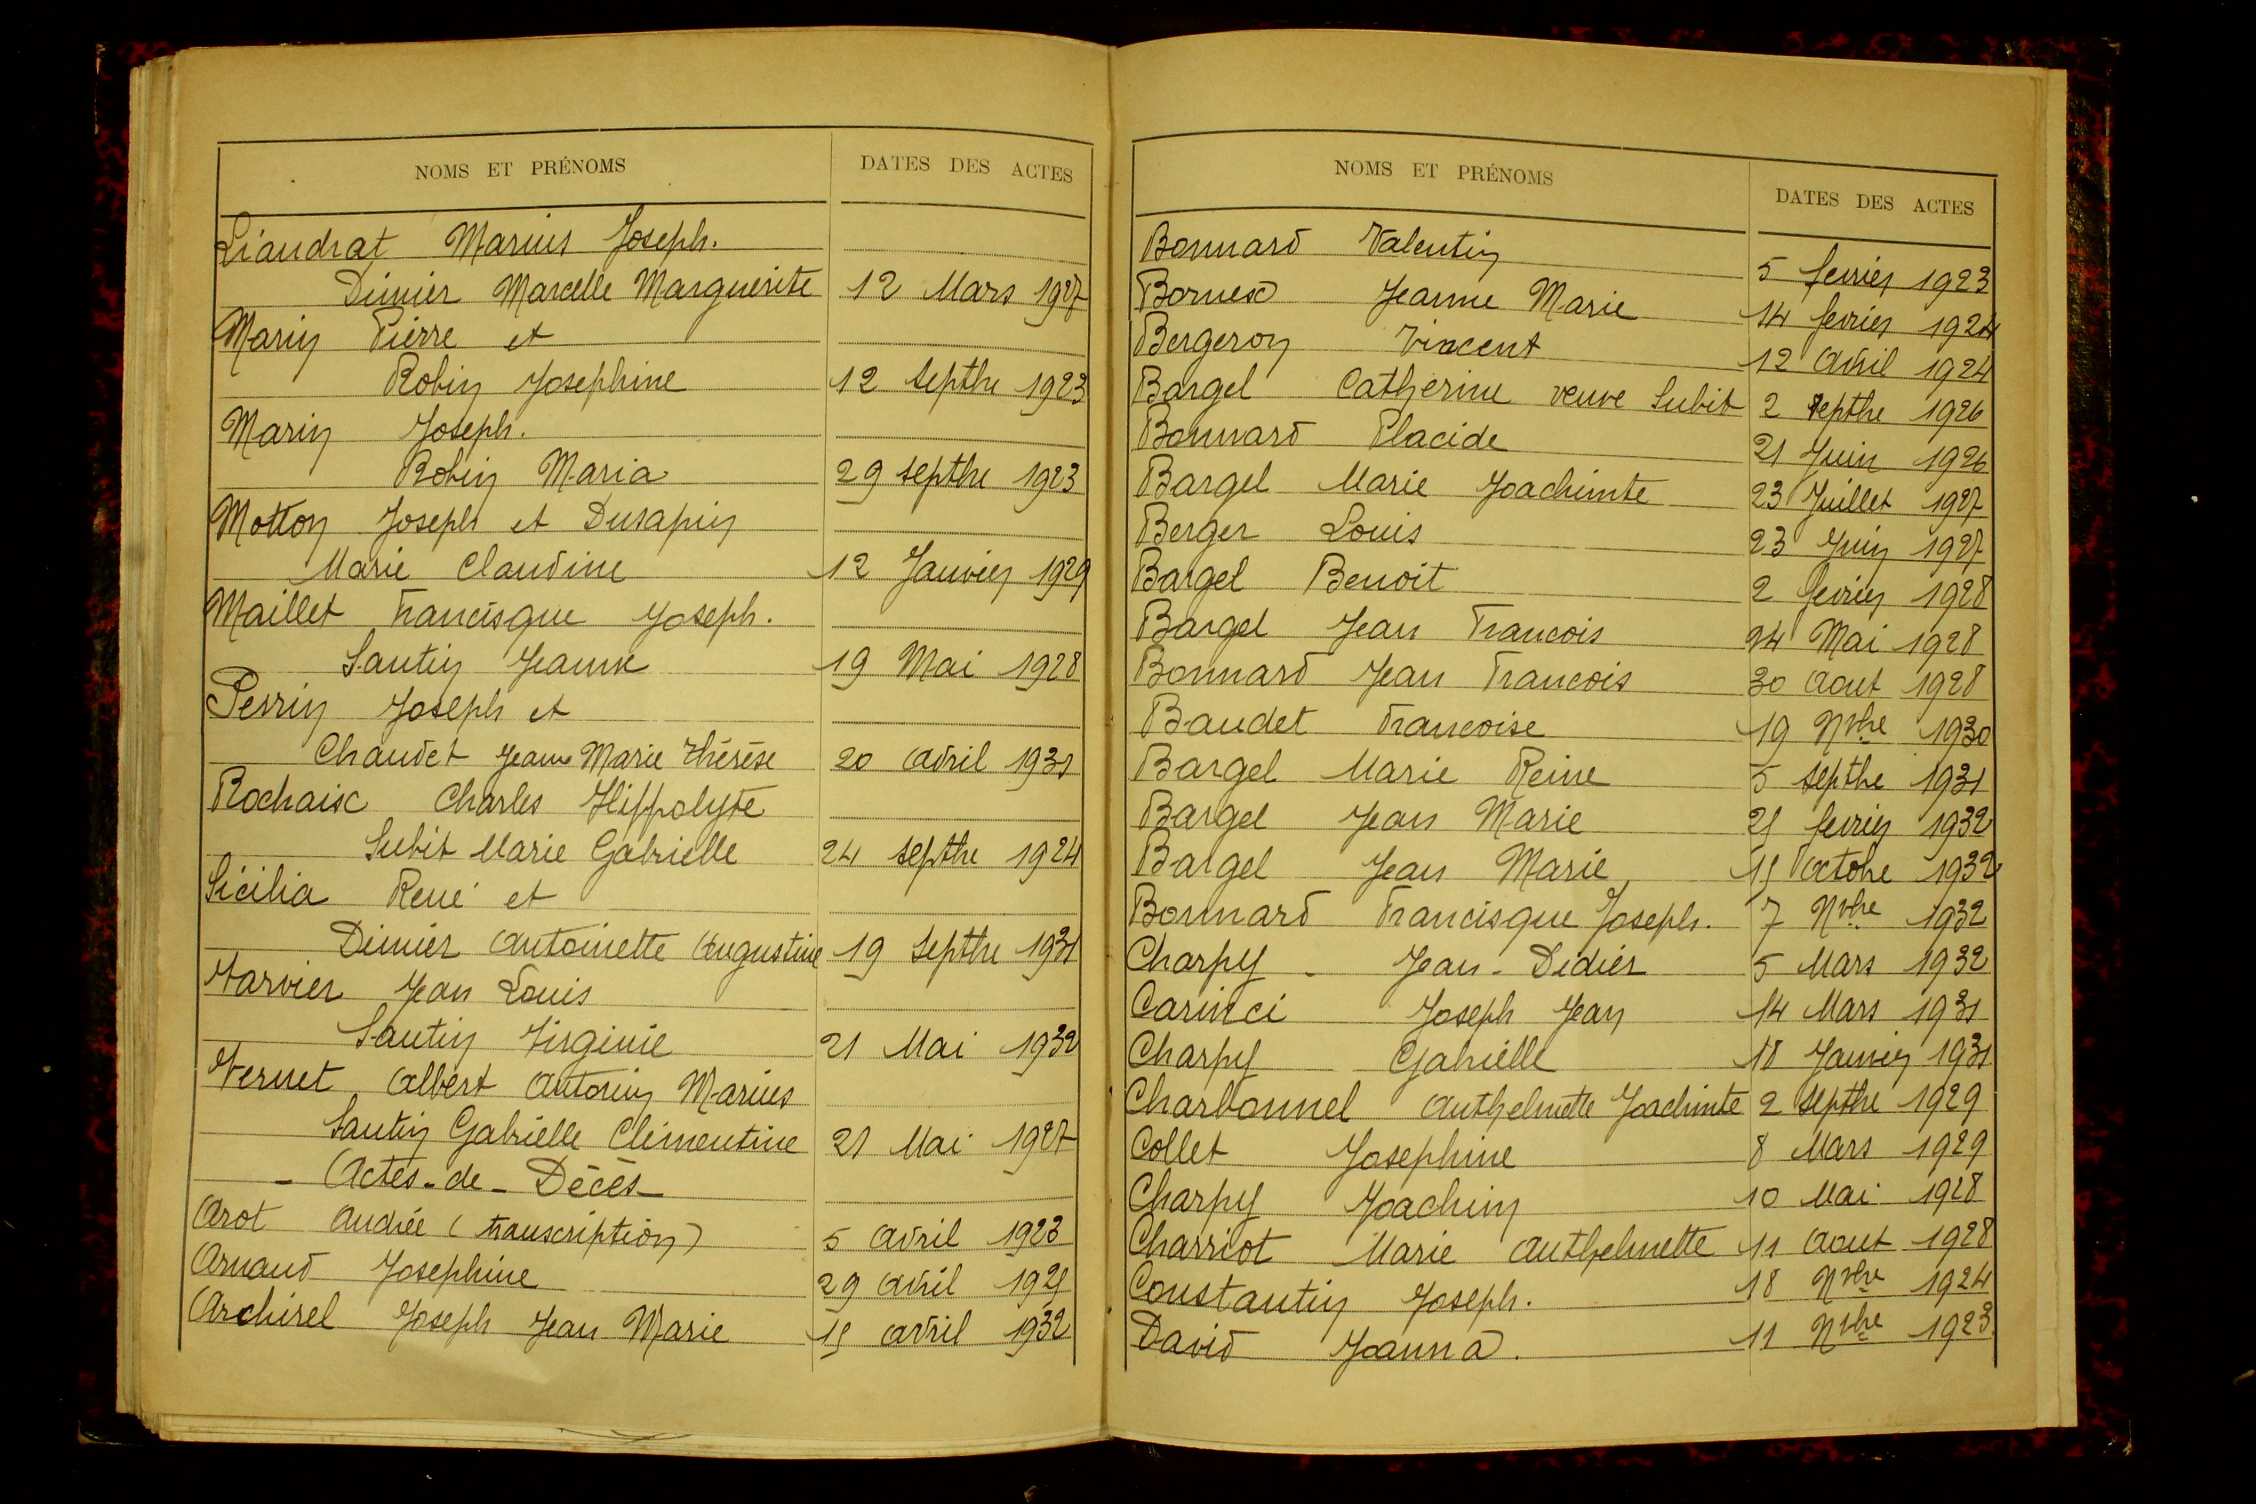 NOMS ET PRÉNOMS DATES DES ACTES
Liaudrat Marius Joseph.
Dimier Marcelle Marguerite 12 Mars 1927
Marin Pierre et
Robin Josephine 12 septbre 1923
Marin Joseph.
Robin Maria 29 septbre 1923
Motton Joseph et Dusapin
Marie Claudine 12 Janvier 1929
Maillet Francisque Joseph.
Santin Jeanne 19 Mai 1928
Perrin Joseph et
Chaudet Jeanne Marie Thérèse 20 avril 1931
Rochaix Charles Hippolyte
Subit Marie Gabrielle 24 septbre 1924
Sicilia René et
Dimier Antoinette Augustine 19 Septbre 1931
Varvier Jean Louis
Santin Virginie 21 Mai 1932
Vernet Albert Antonin Marius
Santin Gabrielle Clémentine 21 Mai 1927
- Actes-de-Décès-
Arot Andrée (transcription) 5 avril 1923
Arnaud Josephine 29 avril
Archirel Joseph Jean Marie 15 avril 1932
NOMS ET PRÉNOMS DATES DES ACTES
Bonnard Valentin 5 fevrier 1923
Bornex Jeanne Marie 14 fevrier 1924
Bergeron Vincent 12 avril 1924
Bargel Catherine veuve Subit 2 septbre 1926
Bonnard Placide 21 Juin 1926
Bargel Marie Joachimte 23 Juillet 1927
Berger Louis 23 Juin 1927
Bargel Benoit 2 fevrier 1928
Bargel Jean Francois 24 Mai 1928
Bonnard Jean Francois 30 aout 1928
Baudet Francoise 19 Nvbre 1930
Bargel Marie Reine 5 septbre 1931
Bargel Jean Marie 25 fevrier 1932
Bargel Jean Marie 15 Octobre 1932
Bonnard Francisque Joseph. 7 Nvbre 1932
Charpy - Jean-Didier 5 Mars 1932
Carinci Joseph Jean 14 Mars 1931
Charpy Gabrielle 18 Janvier 1931
Charbonnel Anthelmette Joachimte 2 septbre 1929
Collet Josephine 8 Mars 1929
Charpy Joachim 10 Mai 1928
Charriot Marie Anthelmette 11 aout 1928
Constantin Joseph. 18 Nvbre 1924
David Joanna. 11 Nvbre 1923